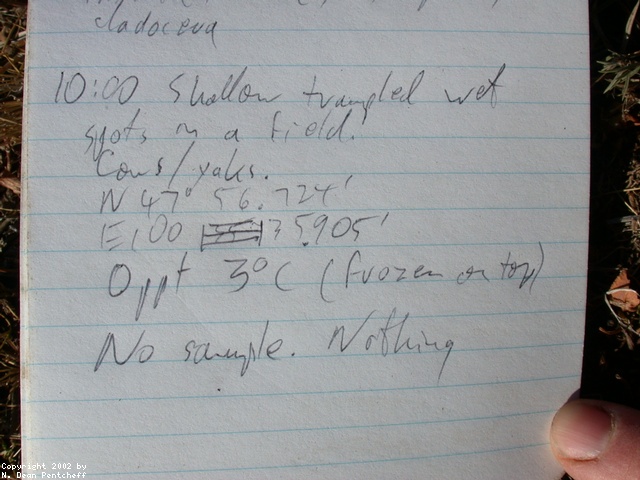 cladocera
10:00 Shallow trampled wet
spots in a field.
Cows/yaks.
N 47° 56.724'
E 100 35.905'
0ppt 3°C (frozen on top)
No sample. Nothing
Copyright 2002 by
N. Dean Pentcheff